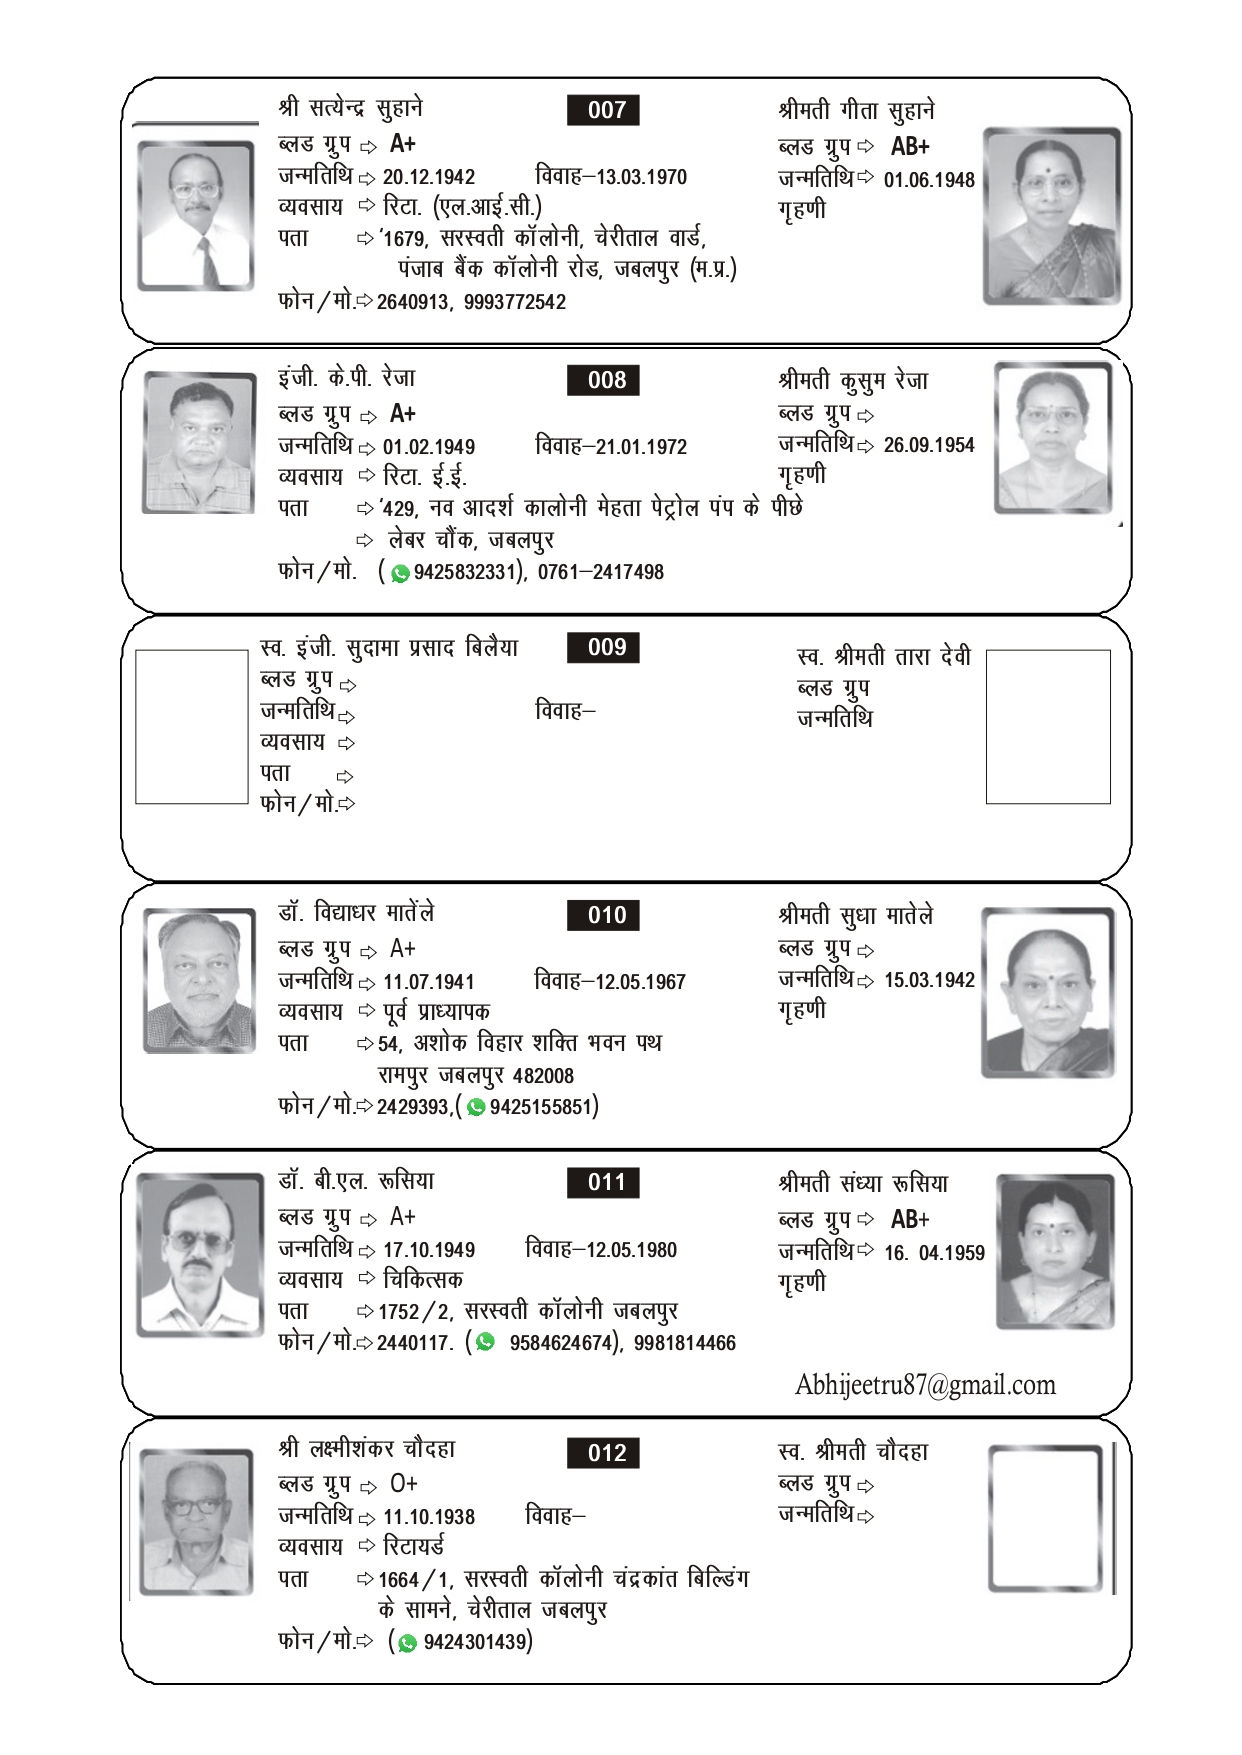 श्री सत्येन्द्र सुहाने 007 श्रीमती गीता सुहाने
ब्लड ग्रुप ⇨ A+ ब्लड ग्रुप ⇨ AB+
जन्मतिथि ⇨ 20.12.1942 विवाह–13.03.1970 जन्मतिथि ⇨ 01.06.1948
व्यवसाय ⇨ रिटा. (एल.आई.सी.) गृहणी
पता ⇨ '1679, सरस्वती कॉलोनी, चेरीताल वार्ड,
पंजाब बैंक कॉलोनी रोड, जबलपुर (म.प्र.)
फोन/मो.⇨ 2640913, 9993772542
इंजी. के.पी. रेजा 008 श्रीमती कुसुम रेजा
ब्लड ग्रुप ⇨ A+ ब्लड ग्रुप ⇨
जन्मतिथि ⇨ 01.02.1949 विवाह–21.01.1972 जन्मतिथि ⇨ 26.09.1954
व्यवसाय ⇨ रिटा. ई.ई. गृहणी
पता ⇨ '429, नव आदर्श कालोनी मेहता पेट्रोल पंप के पीछे
⇨ लेबर चौंक, जबलपुर
फोन/मो. (9425832331), 0761–2417498
स्व. इंजी. सुदामा प्रसाद बिलैया 009 स्व. श्रीमती तारा देवी
ब्लड ग्रुप ⇨ ब्लड ग्रुप
जन्मतिथि ⇨ विवाह– जन्मतिथि
व्यवसाय ⇨
पता ⇨
फोन/मो.⇨
डॉ. विद्याधर मातेंले 010 श्रीमती सुधा मातेले
ब्लड ग्रुप ⇨ A+ ब्लड ग्रुप ⇨
जन्मतिथि ⇨ 11.07.1941 विवाह–12.05.1967 जन्मतिथि ⇨ 15.03.1942
व्यवसाय ⇨ पूर्व प्राध्यापक गृहणी
पता ⇨ 54, अशोक विहार शक्ति भवन पथ
रामपुर जबलपुर 482008
फोन/मो.⇨ 2429393,(9425155851)
डॉ. बी.एल. रूसिया 011 श्रीमती संध्या रूसिया
ब्लड ग्रुप ⇨ A+ ब्लड ग्रुप ⇨ AB+
जन्मतिथि ⇨ 17.10.1949 विवाह–12.05.1980 जन्मतिथि ⇨ 16. 04.1959
व्यवसाय ⇨ चिकित्सक गृहणी
पता ⇨ 1752/2, सरस्वती कॉलोनी जबलपुर
फोन/मो.⇨ 2440117. (9584624674), 9981814466
Abhijeetru87@gmail.com
श्री लक्ष्मीशंकर चौदहा 012 स्व. श्रीमती चौदहा
ब्लड ग्रुप ⇨ O+ ब्लड ग्रुप ⇨
जन्मतिथि ⇨ 11.10.1938 विवाह– जन्मतिथि ⇨
व्यवसाय ⇨ रिटायर्ड
पता ⇨ 1664/1, सरस्वती कॉलोनी चंद्रकांत बिल्डिंग
के सामने, चेरीताल जबलपुर
फोन/मो.⇨ (9424301439)